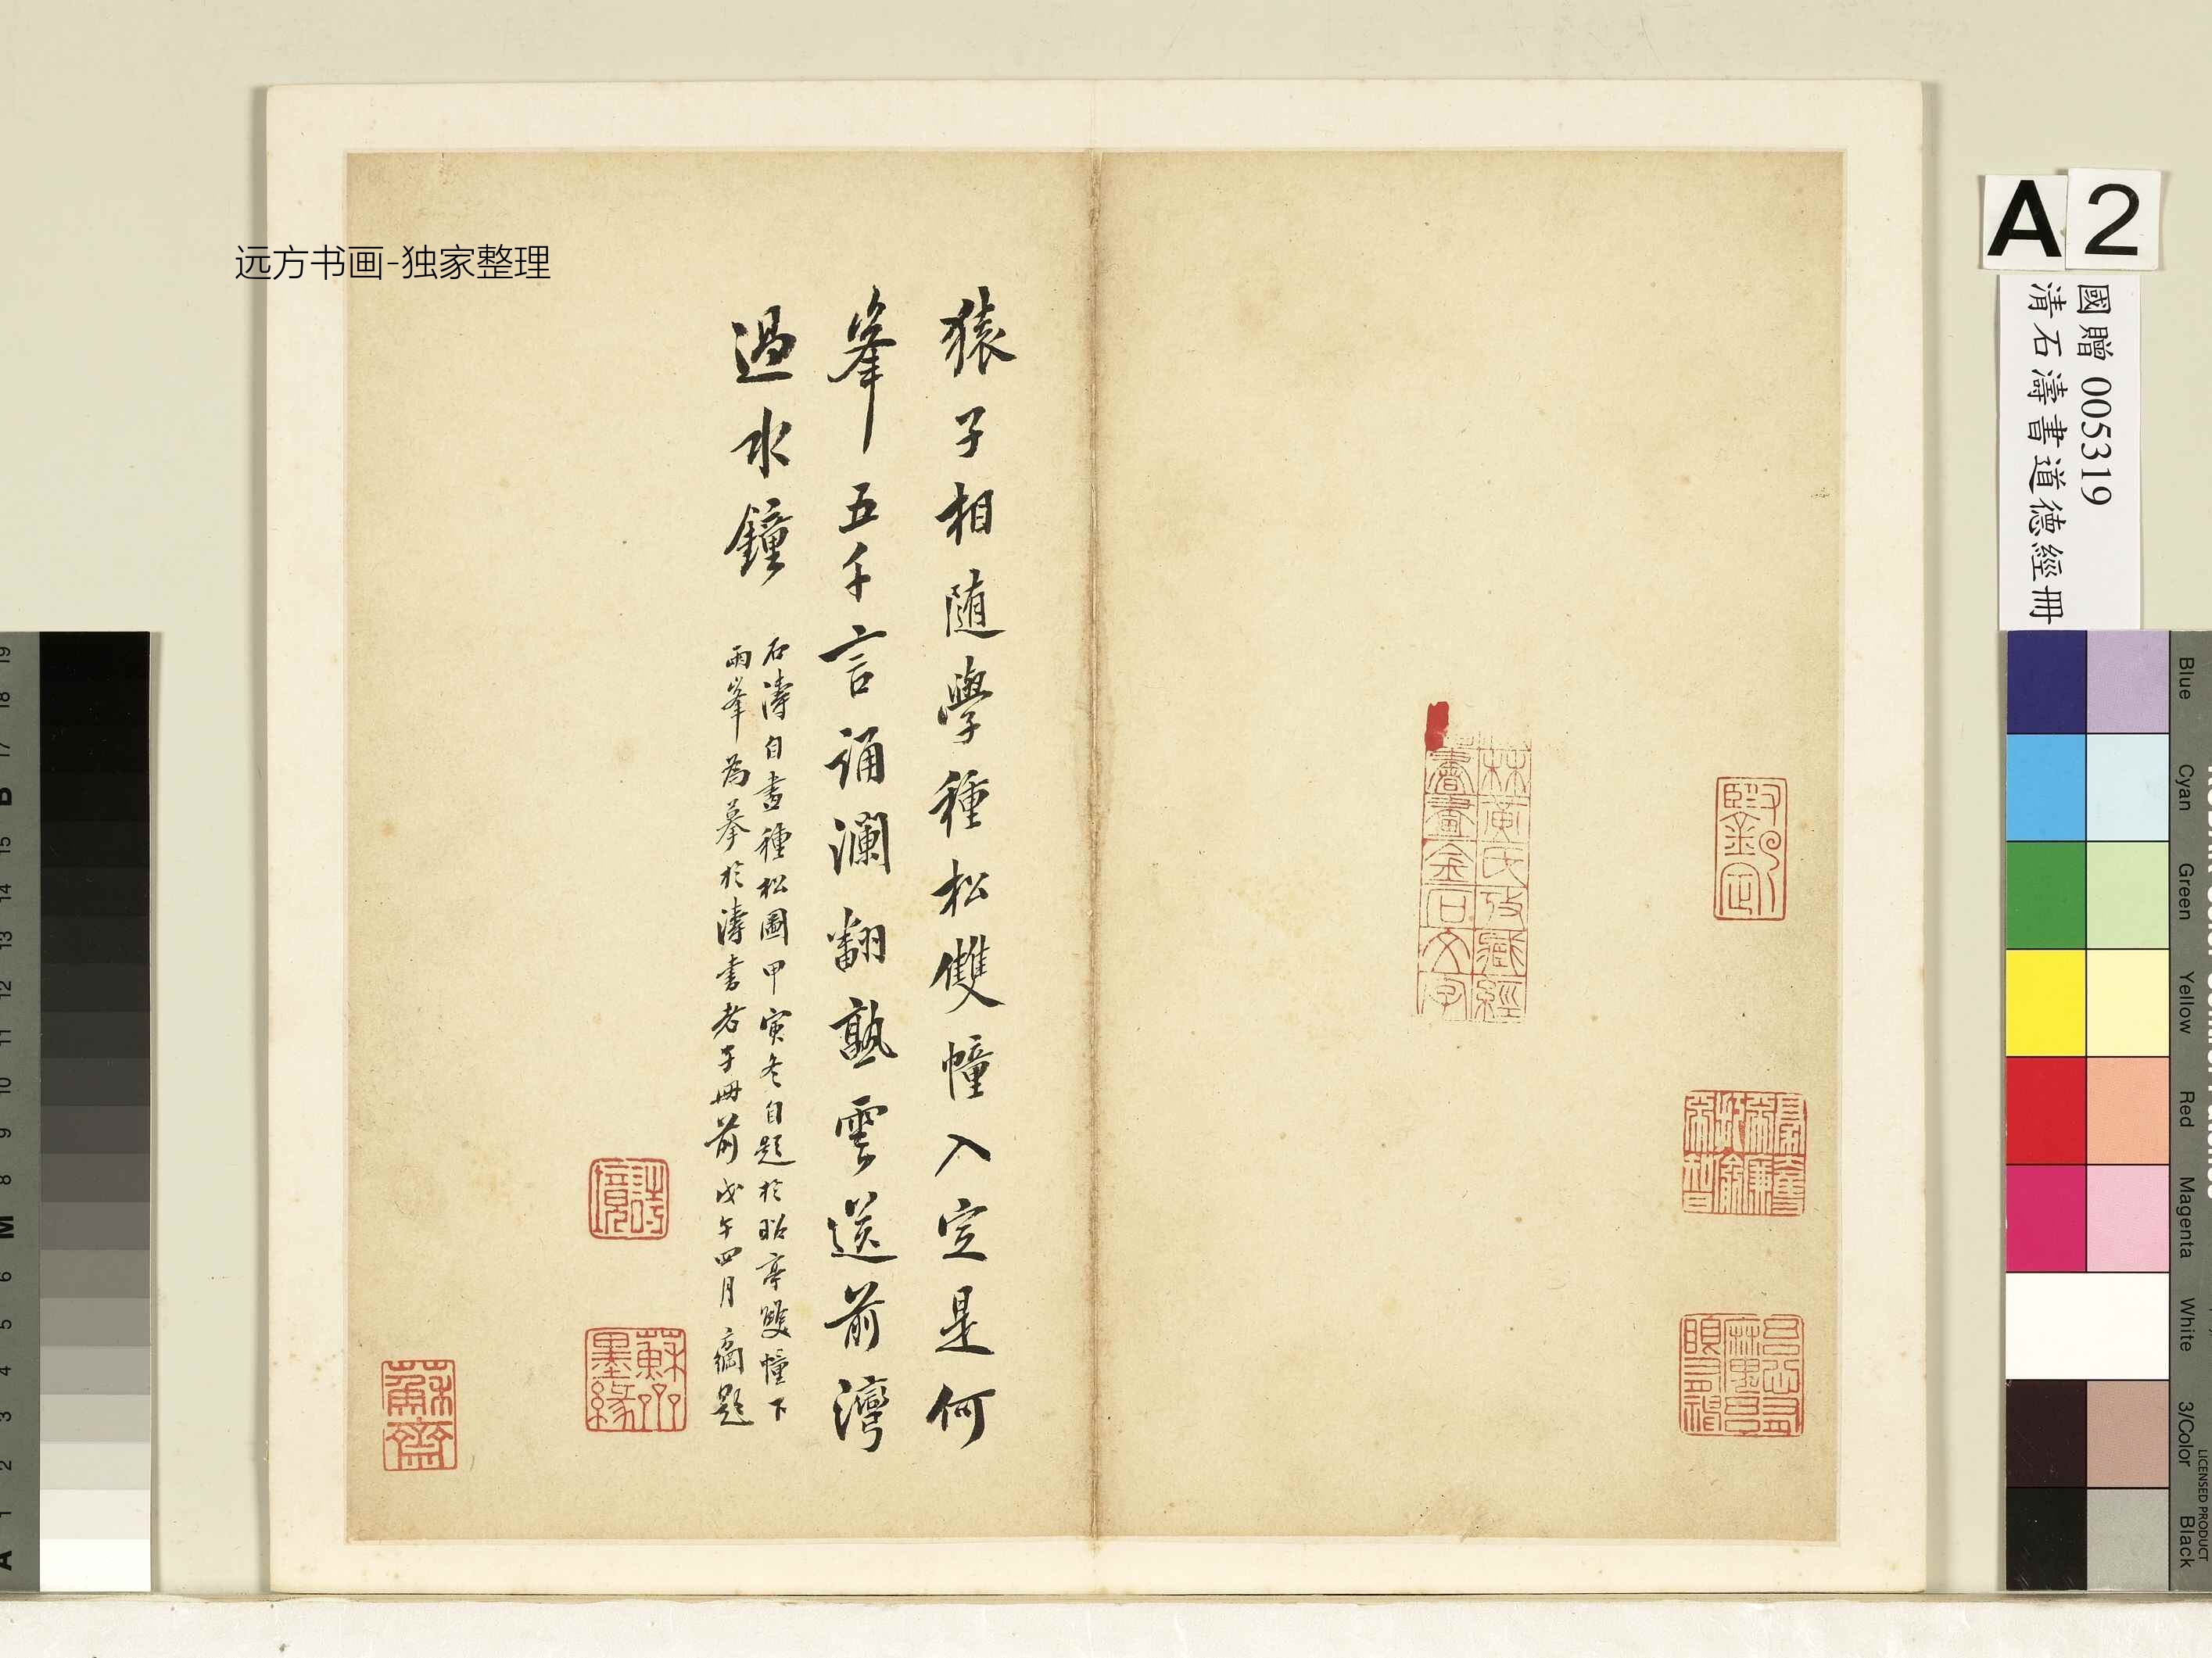 远方书画-独家整理
猿子相随學種松雙幢入定是何
峯五千言誦瀾翻熟雲送前灣
過水鐘
石濤自畫種松圖甲寅冬自題於昭亭雙幢下
兩峯為摹於濤書老子冊前戊午四月 方綱題
詩境
蘇齋墨緣
蘇齋
林黃氏攷藏經
書畫金石文字
A 2
國贈 005319
清石濤書道德經冊
Blue
Cyan
Green
Yellow
Red
Magenta
White
3/Color
Black
LICENSED PRODUCT
A 1 2 3 4 5 6 M 8 9 10 11 12 13 14 15 B 17 18 19